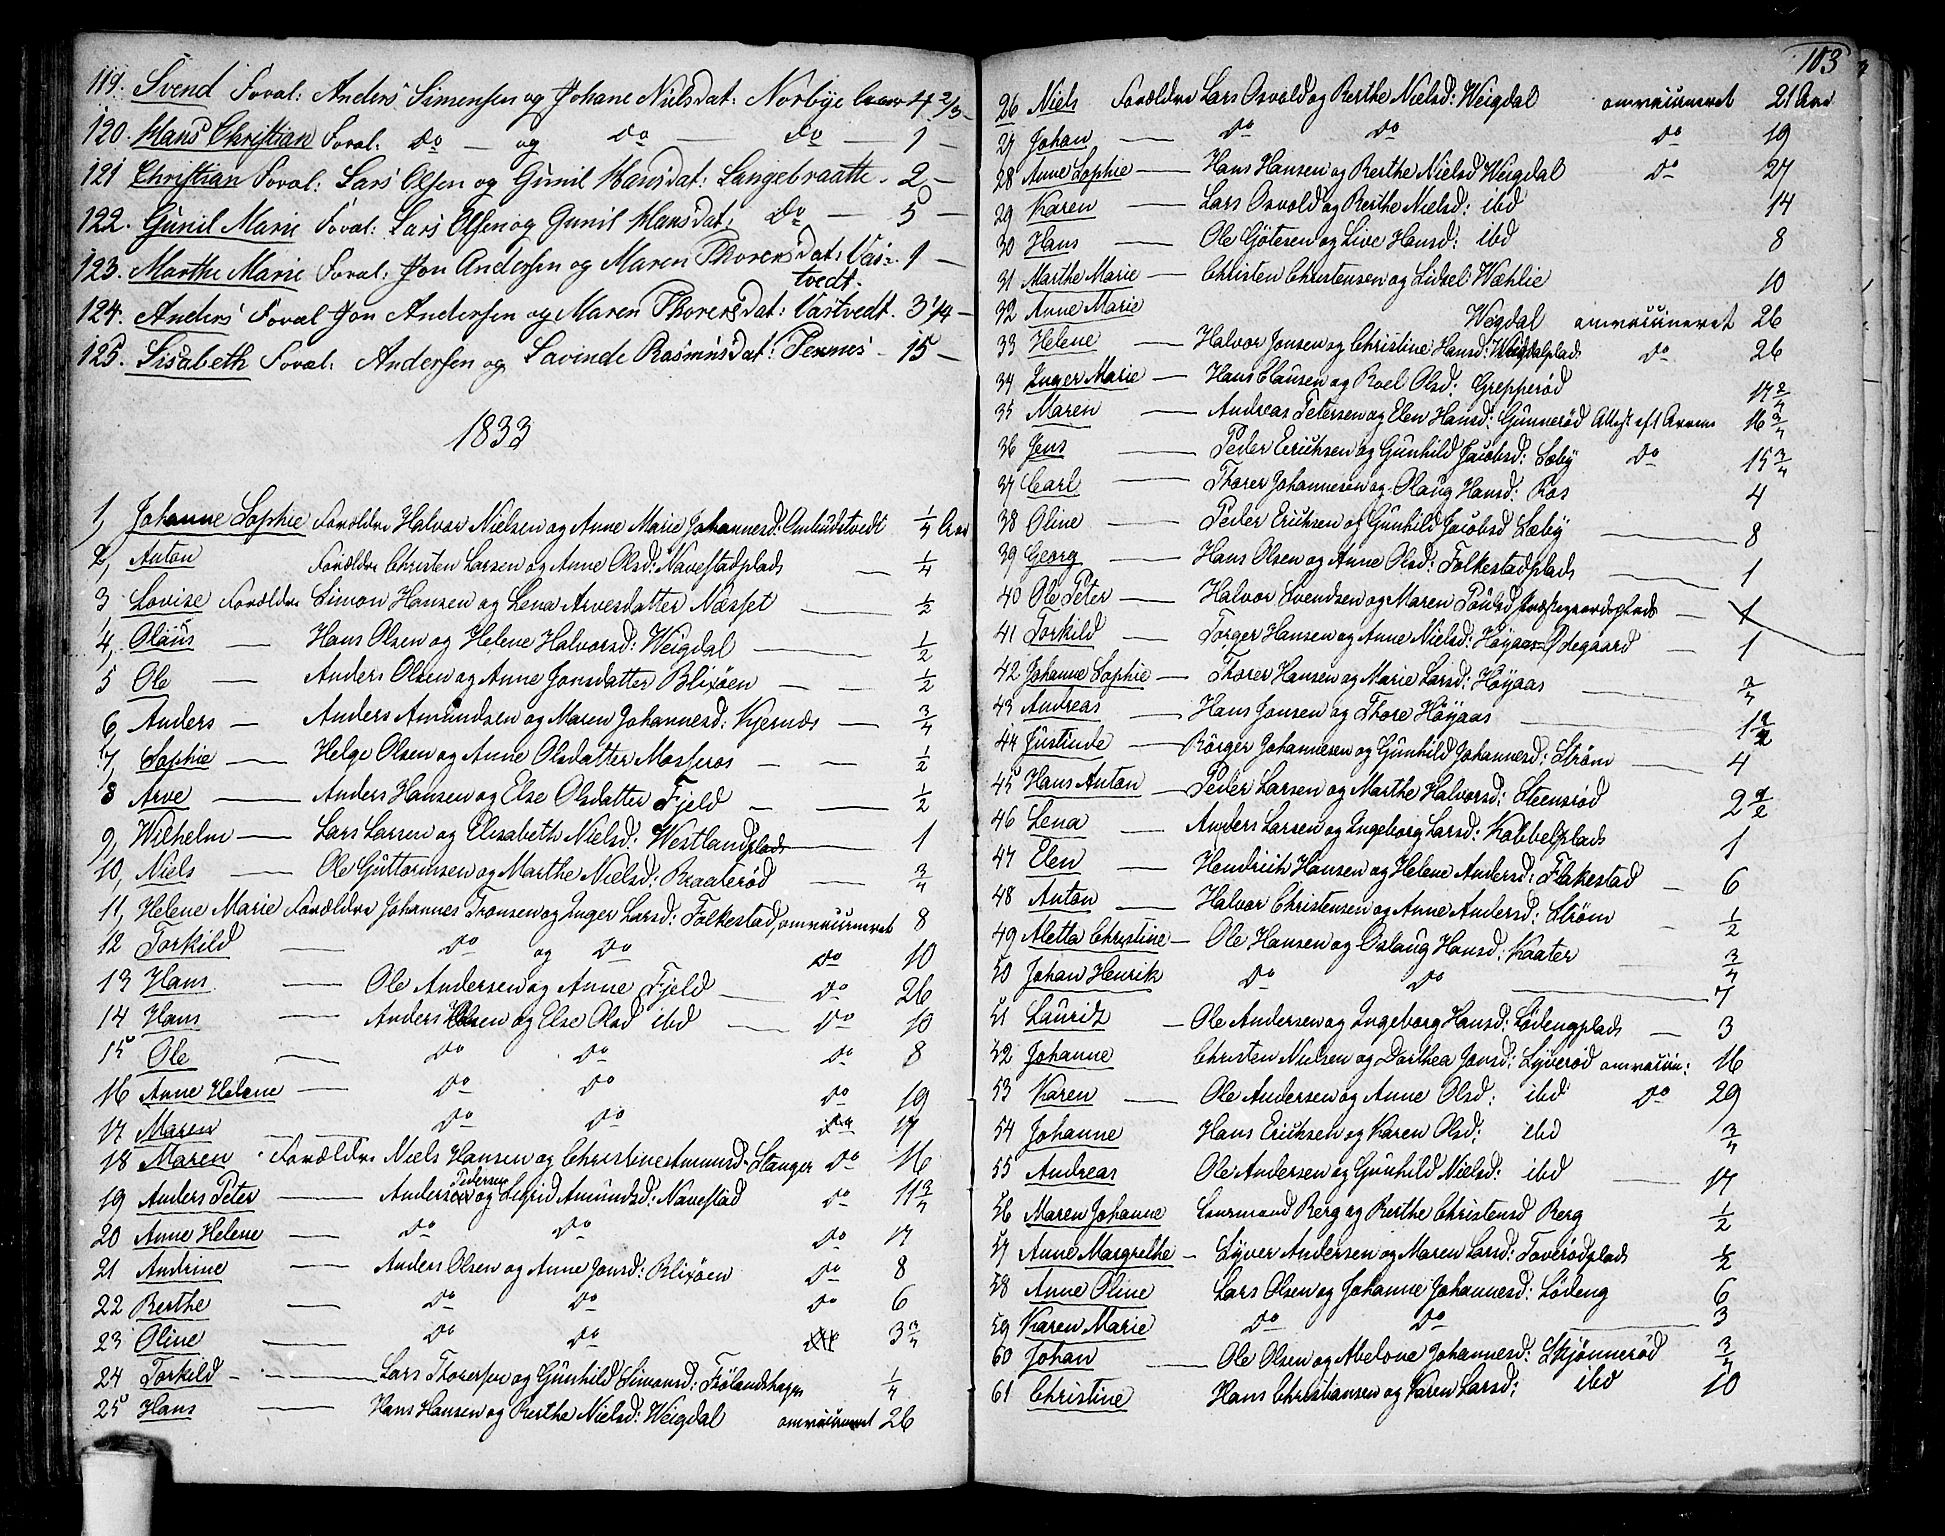 119. Svend Foræl: Anders Simensen og Johane Nielsdat: Norbye 4 2/3 —
120. Hans Christian Foræl: do — og do — do — 1 —
121 Christian Foræl: Lars Olsen og Gunil Hansdat: Langebraatte - 2 —
122. Gunil Marie Foræl: Lars Olsen og Gunil Hansdat: do — 5 —
123. Marthe Marie Foræl: Jon Andersen og Maren Thorersdat: Vas- 1 —
tvedt.
124. Anders Foræl Jon Andersen og Maren Thorersdat: Vastvedt. 3 1/4 —
125. Lisabeth Foræl: Andersen og Lavinde Rasmusdat: Tennes - 15 —
1833
1, Johanne Sophie Forældre Halvor Nielsen og Anne Marie Johannesd: Ambudstvedt 1/4 Aar
2, Anton Forældre Christen Larsen og Anne Olsd: Navestadplads — 1/4
3 Lovise Forældre Simon Hansen og Lena Arvesdatter Næsset — 1/2
4, Olaus — Hans Olsen og Helene Halvorsd: Weigdal — 1/2
5 Ole — Anders Olsen og Anne Jonsdatter Blixøen — — 1/2
6, Anders — Anders Amundsen og Maren Johannesd: Kjernæs — 3/4
7, Sophie — Helge Olsen og Anne Olsdatter Mosseros — — 1/2
8 Arve — Anders Hansen og Else Olsdatter Fjeld — — 1/2
9, Wilhelm — Lars Larsen og Elisabeth Nielsd: Westlandplads — 1
10, Niels — Ole Guttormsen og Marthe Nielsd: Braaterød — 3/4
11, Helene Marie Forældre Johannes Tronsen og Inger Larsd: Folkestad, omvaccineret 8
12 Torkild — do og do do 10
13 Hans — Ole Andersen og Anne Fjeld — do 26
14 Hans — Anders Olsen og Else Olsd ibd — do 10
15 Ole — do do do 8
16 Anne Helene — do do do 19
17 Maren — do do do 17
18 Maren Forældre Niels Hansen og Christine Amunsd: Stanger do 16
Pedersen
19 Anders Peter — Anders og Sigrid Amundsd: Navestad do 11 3/4
20 Anne Helene — do do do 17
21 Andrine — Anders Olsen og Anne Jonsd: Blixøen do 8
22 Berthe — do do do 6
23 Oline — do do 3 3/4
24 Torkild — Lars Thorersen og Gunhild Simonsd: Frølandshagen 1/4
25 Hans — Hans Hansen og Berthe Nielsd: Weigdal omvaccineret 26
103
26 Niels Forældre Lars Osvold og Berthe Nielsd: Weigdal omvaccineret 21 Aar
27 Johan — do do do 19
28 Anne Sophie — Hans Hansen og Berthe Nielsd Weigdal do 27
29 Karen — Lars Osvold og Berthe Nielsd: ibd 14
30 Hans — Ole Götesen og Live Hansd: ibd 8
31 Marthe Marie — Christen Christensen og Lidsel Wæhlie 10
32 Anne Marie Weigdal omvaccineret 26
33 Helene — Halvor Jonsen og Christine Hansd: Weigdalplads do 26
34 Inger Marie — Hans Clausen og Roel Olsd: Grepperød 14 2/4
35 Maren — Andreas Petersen og Elen Hansd: Gunnerød Attest eft 16 3/4
36 Jens — Peder Ericksen og Gunhild Jacobsd: Sæby do 15 3/4
37 Carl — Thorer Johannesen og Olaug Hansd: Ros 4
38 Oline — Peder Ericksen og Gunhild Jacobsd Sæby — 8
39 Georg — Hans Olsen og Anne Olsd: Folkestadplads — 1
40 Ole Peter — Halvor Svendsen og Maren Poulsd Præstegaardsplads — 1
41 Torkild — Torger Hansen og Anne Nielsd: Høyaas Ødegaard — 1
42 Johanne Sophie — Thorer Hansen og Marie Larsd: Høyaas — 3/4
43 Andreas — Hans Jonsen og Thore Høyaas — 1 1/2
44 Justinde — Börger Johannesen og Gunhild Johannesd: Strøm — 4
45 Hans Anton — Peder Larsen og Marthe Halvorsd: Steensrød 2 1/2
46 Lena — Anders Larsen og Ingeborg Larsd: Kabbelplads 1
47 Elen — Hendrich Hansen og Helene Andersd: Flakestad — 6
48 Anton — Halvor Christensen og Anne Andersd: Strøm — 1/2
49 Aletta Christine — Ole Hansen og Oslaug Hansd: Kaater — 3/4
50 Johan Henrik do do — 7
51 Lauritz — Ole Andersen og Ingeborg Hansd: Lødengplads — 3
52 Johanne Christen Nielsen og Dorthea Jonsd: Syverød omvaccin: 16
53 Karen — Ole Andersen og Anne Olsd: ibd do 29
54 Johanne Hans Ericksen og Karen Olsd: ibd 3/4
55 Andreas Ole Andersen og Gunhild Nielsd: ibd — 17
56 Maren Johanne Guurmand Berg og Berthe Christensd Berg 1/2
57 Anne Margrethe — Syver Andersen og Maren Larsd: Toverødplads 1/2
58 Anne Oline Lars Olsen og Johanne Johannesd: Lødeng 6
59 Karen Marie do do — 3
60 Johan — Ole Olsen og Abelone Johannesd: Skjønnerød 3/4
61 Christine Hans Christiansen og Karen Larsd: ibd 10